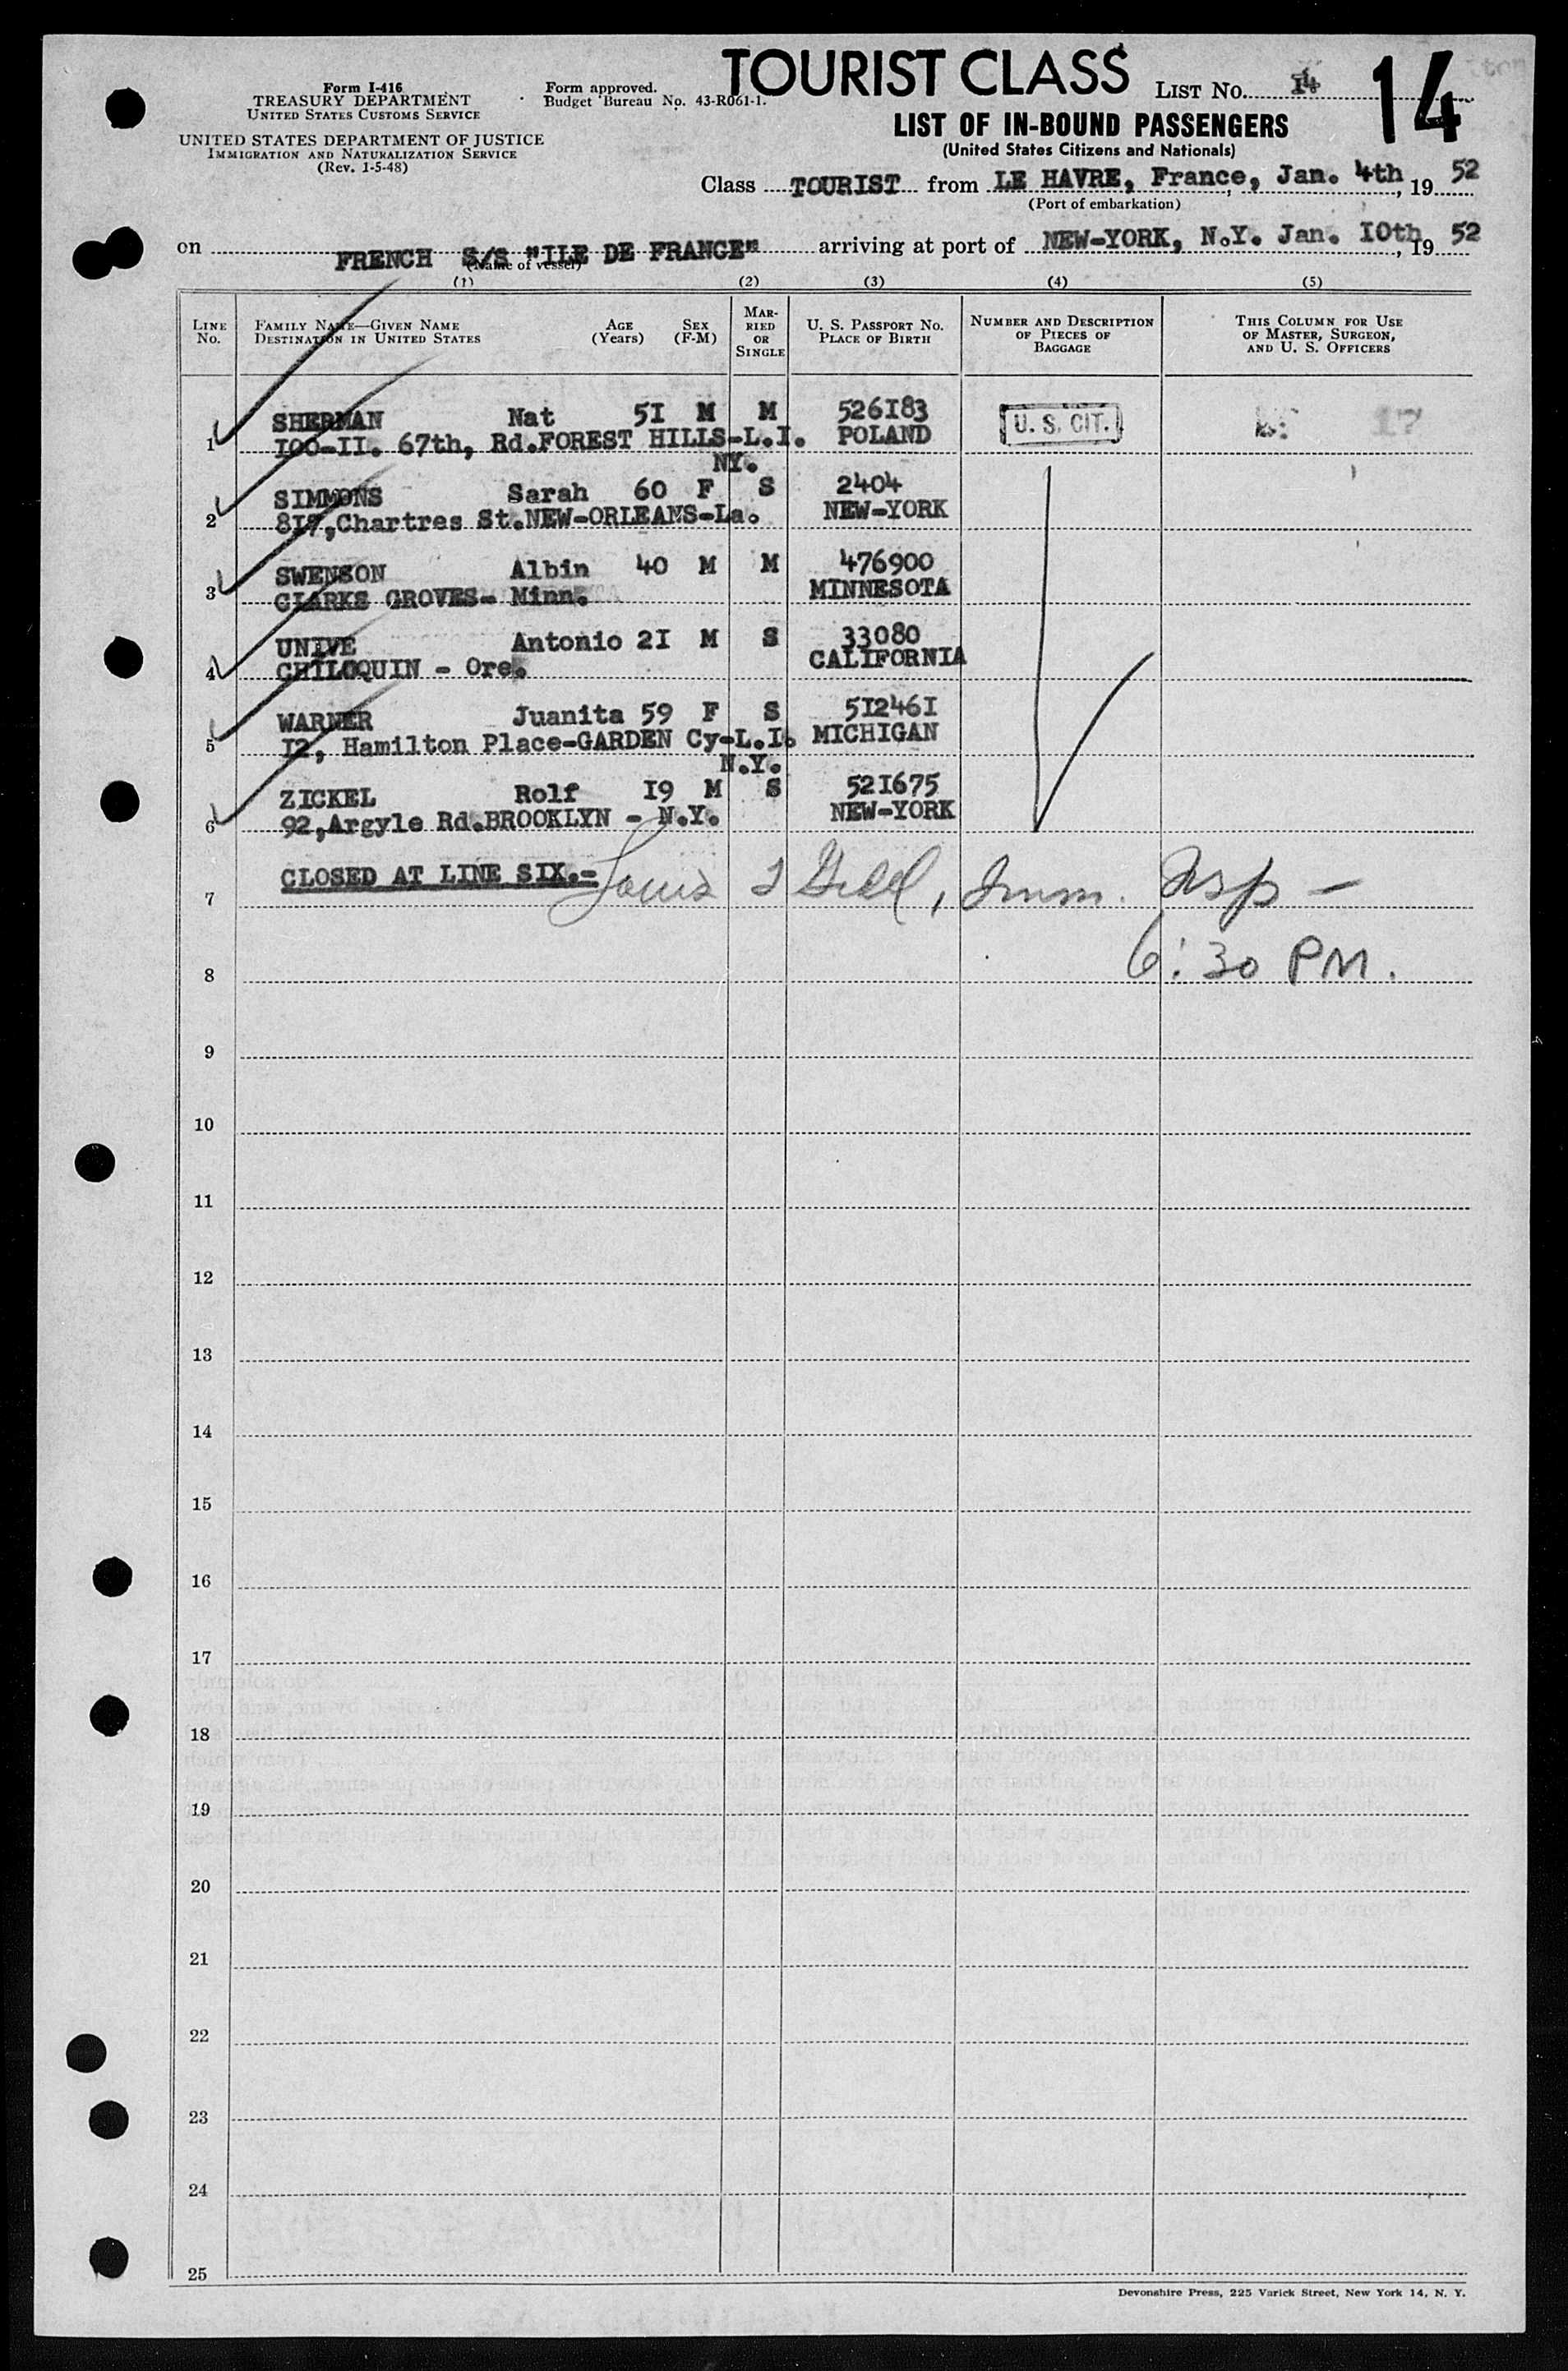 TOURIST CLASS
Form I-416
TREASURY DEPARTMENT
UNITED STATES CUSTOMS SERVICE
UNITED STATES DEPARTMENT OF JUSTICE
IMMIGRATION AND NATURALIZATION SERVICE
(Rev. 1-5-48)
Form approved.
Budget Bureau No. 43-R061-1.
LIST No. 14
14
LIST OF IN-BOUND PASSENGERS
(United States Citizens and Nationals)
Class TOURIST from LE HAVRE, France, Jan. 4th, 19 52
(Port of embarkation)
on FRENCH S/S "ILE DE FRANCE" arriving at port of NEW-YORK, N.Y. Jan. 10th, 19 52
(Name of vessel)
(1) (2) (3) (4) (5)
LINE No. FAMILY NAME—GIVEN NAME DESTINATION IN UNITED STATES AGE (Years) SEX (F-M) MARRIED OR SINGLE U. S. PASSPORT NO. PLACE OF BIRTH NUMBER AND DESCRIPTION OF PIECES OF BAGGAGE THIS COLUMN FOR USE OF MASTER, SURGEON, AND U. S. OFFICERS
SHERMAN Nat 5I M M 526I83 U. S. CIT. 17
1 I00-II. 67th, Rd.FOREST HILLS-L.I. POLAND
NY.
SIMMONS Sarah 60 F S 2404
2 817,Chartres St.NEW-ORLEANS-La. NEW-YORK
SWENSON Albin 40 M M 476900
3 CLARKS GROVES- Minn. MINNESOTA
UNIVE Antonio 2I M S 33080
4 CHILOQUIN - Ore. CALIFORNIA
WARNER Juanita 59 F S 5I246I
5 I2, Hamilton Place-GARDEN Cy-L.I. MICHIGAN
N.Y.
ZICKEL Rolf I9 M S 52I675
6 92,Argyle Rd.BROOKLYN - N.Y. NEW-YORK
CLOSED AT LINE SIX.-
7 Louis Imm. Insp -
8 6:30 PM.
9
10
11
12
13
14
15
16
17
18
19
20
21
22
23
24
25
Devonshire Press, 225 Varick Street, New York 14, N. Y.